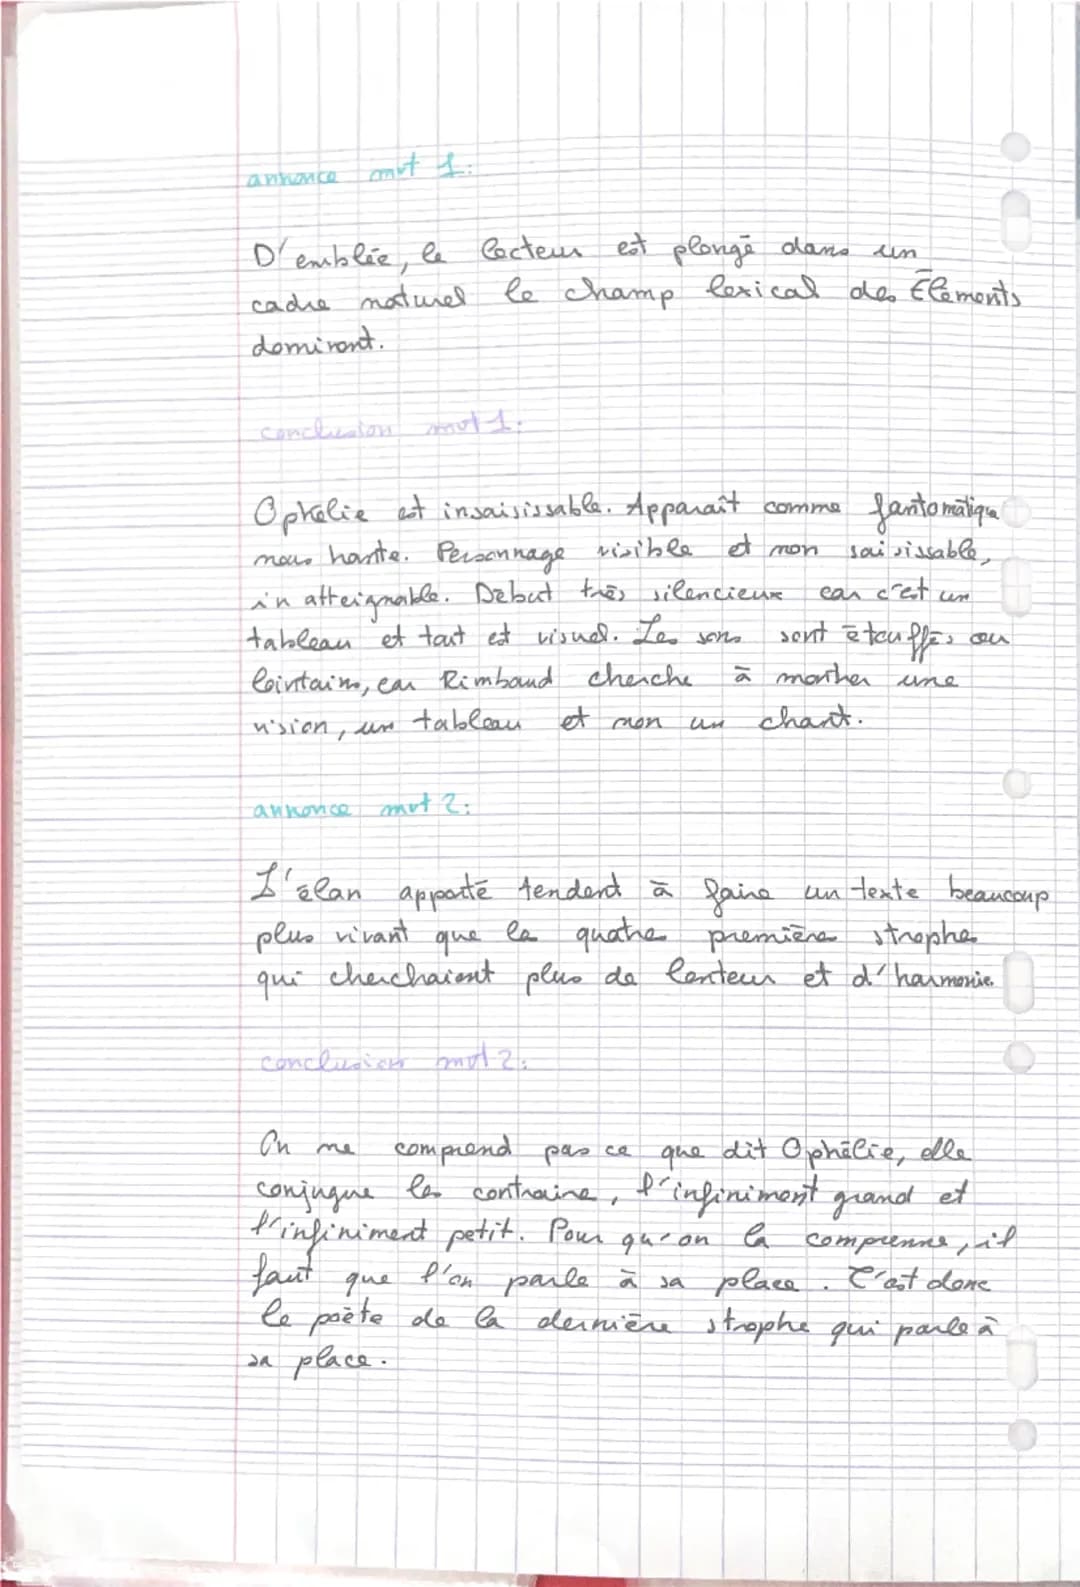 annonce mvt 1:
D'emblée, le lecteur est plongé dans un
cadre naturel le champ lexical des Éléments
dominent.
conclusion mvt 1:
Ophélie est insaisissable. Apparaît comme fantomatique
nous hante. Personnage visible et non saisissable,
inatteignable. Début très silencieux car c'est un
tableau et tout est visuel. Les sons sont étouffés ou
lointains, car Rimbaud cherche à monther une
vision, un tableau et non un chant.
annonce mvt 2:
L'élan apporté tendent à faire un texte beaucoup
plus vivant que les quatre première strophes
qui cherchaient plus de lenteur et d'harmonie.
conclusion mvt 2:
On ne comprend pas ce que dit Ophélie, elle
conjugue les contraire, l'infiniment grand et
l'infiniment petit. Pour qu'on la comprenne, il
faut que l'on parle à sa place. C'est donc
le poète de la dernière strophe qui parle à
sa place.